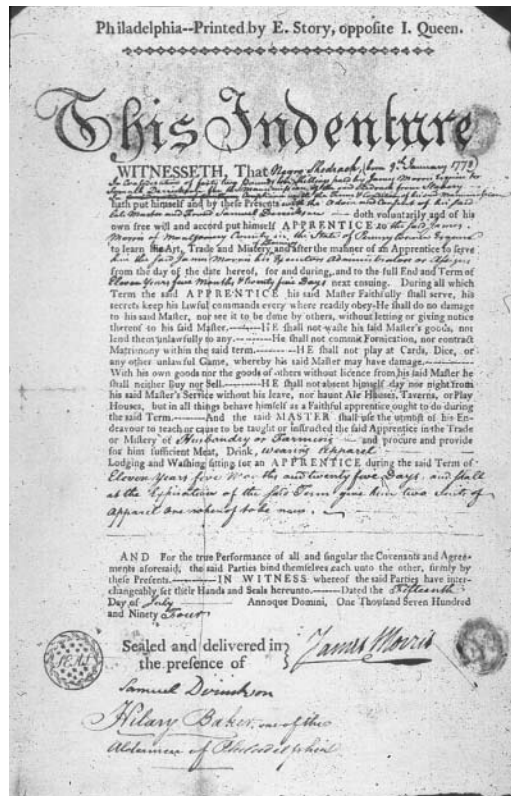 Philadelphia--Printed by E. Story, opposite I. Queen.
This Indenture
WITNESSETH, That Negro Shedrach, born 9th January 1778
In Consideration of forty two Pounds ten Shillings paid by James Morris Esquire to
Samuel for the Manumission of the said Shedrach from Slavery
hath put himself and by these Presents with the Advice and Consent of his said
late Master and Friend Samuel doth voluntarily and of his
own free will and accord put himself APPRENTICE to the said James
Morris of Montgomery County in the State of Pennsylvania Esquire
to learn his Art, Trade and Mistery, and after the manner of an Apprentice to serve
him the said James Morris his Executors Administrators or Assigns
from the day of the date hereof, for and during, and to the full End and Term of
Eleven Years five Months & twenty five Days next ensuing. During all which
Term the said APPRENTICE his said Master Faithfully shall serve, his
secrets keep his lawful commands every where readily obey-He shall do no damage
to his said Master, nor see it to be done by others, without letting or giving notice
thereof to his said Master.----HE shall not waste his said Master's goods, nor
lend them unlawfully to any.----He shall not commit Fornication, nor contract
Matrimony within the said term.----HE shall not play at Cards, Dice, or
any other unlawful Game, whereby his said Master may have damage.----
With his own goods nor the goods of others without licence from his said Master he
shall neither Buy nor Sell.----HE shall not absent himself day nor night from
his said Master's Service without his leave, nor haunt Ale Houses, Taverns, or Play
Houses, but in all things behave himself as a Faithful apprentice ought to do during
the said Term.----And the said MASTER shall use the utmost of his En-
deavour to teach or cause to be taught or instructed the said Apprentice in the Trade
or Mistery of Husbandry or Farming and procure and provide
for him sufficient Meat, Drink, wearing Apparel
Lodging and Washing fitting for an APPRENTICE during the said Term of
Eleven Years five Months and twenty five Days, and shall
at the Expiration of the said Term give him two Suits of
Apparel one whereof to be new.
AND For the true Performance of all and singular the Covenants and Agree-
ments aforesaid, the said Parties bind themselves each unto the other, firmly by
these Presents.----IN WITNESS whereof the said Parties have inter-
changeably set their Hands and Seals hereunto.----Dated the Fifteenth
Day of July Annoque Domini, One Thousand Seven Hundred
and Ninety Four
Sealed and delivered in
the presence of
James Morris
Samuel
Hilary Baker, one of the
Aldermen of Philadelphia